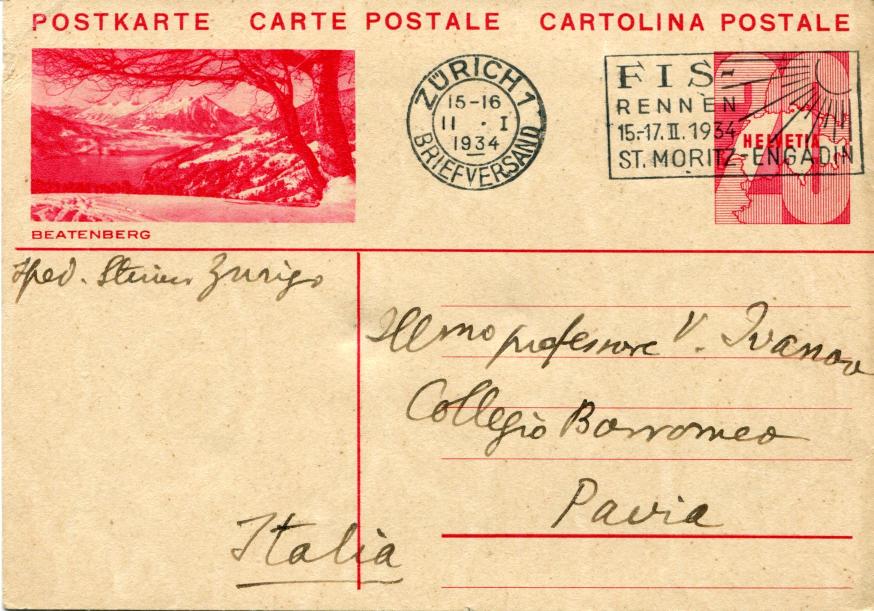 POSTKARTE CARTE POSTALE CARTOLINA POSTALE
BEATENBERG
ZÜRICH 1
15-16
11 · I
1934
BRIEFVERSAND
FIS-
RENNEN
15.-17. II. 1934
ST. MORITZ-ENGADIN
20
HELVETIA
Sped. Steiner Zurigo
Illmo professore V. Ivanov
Collegio Borromeo
Pavia
Italia